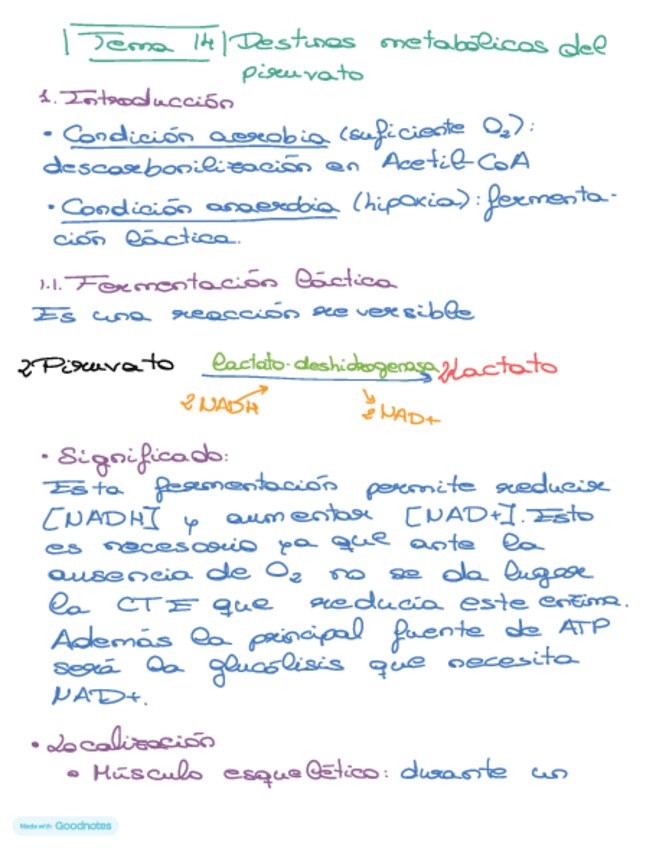 Tema 14 Destinos metabólicos del
piruvato
1. Introducción
• Condición aerobia (suficiente O₂):
descarbonilización en Acetil-CoA
• Condición anaerobia (hipoxia): fermenta-
ción láctica.
1.1. Fermentación láctica
Es una reacción reversible
2 Piruvato lactato-deshidrogenasa 2 Lactato
2 NADH 2 NAD+
• Significado:
Esta fermentación permite reducir
[NADH] y aumentar [NAD+]. Esto
es necesario ya que ante la
ausencia de O₂ no se da lugar
la CTE que reducía este enzima.
Además la principal fuente de ATP
será la glucólisis que necesita
NAD+.
• Localización
• Músculo esquelético: durante un
Made with Goodnotes